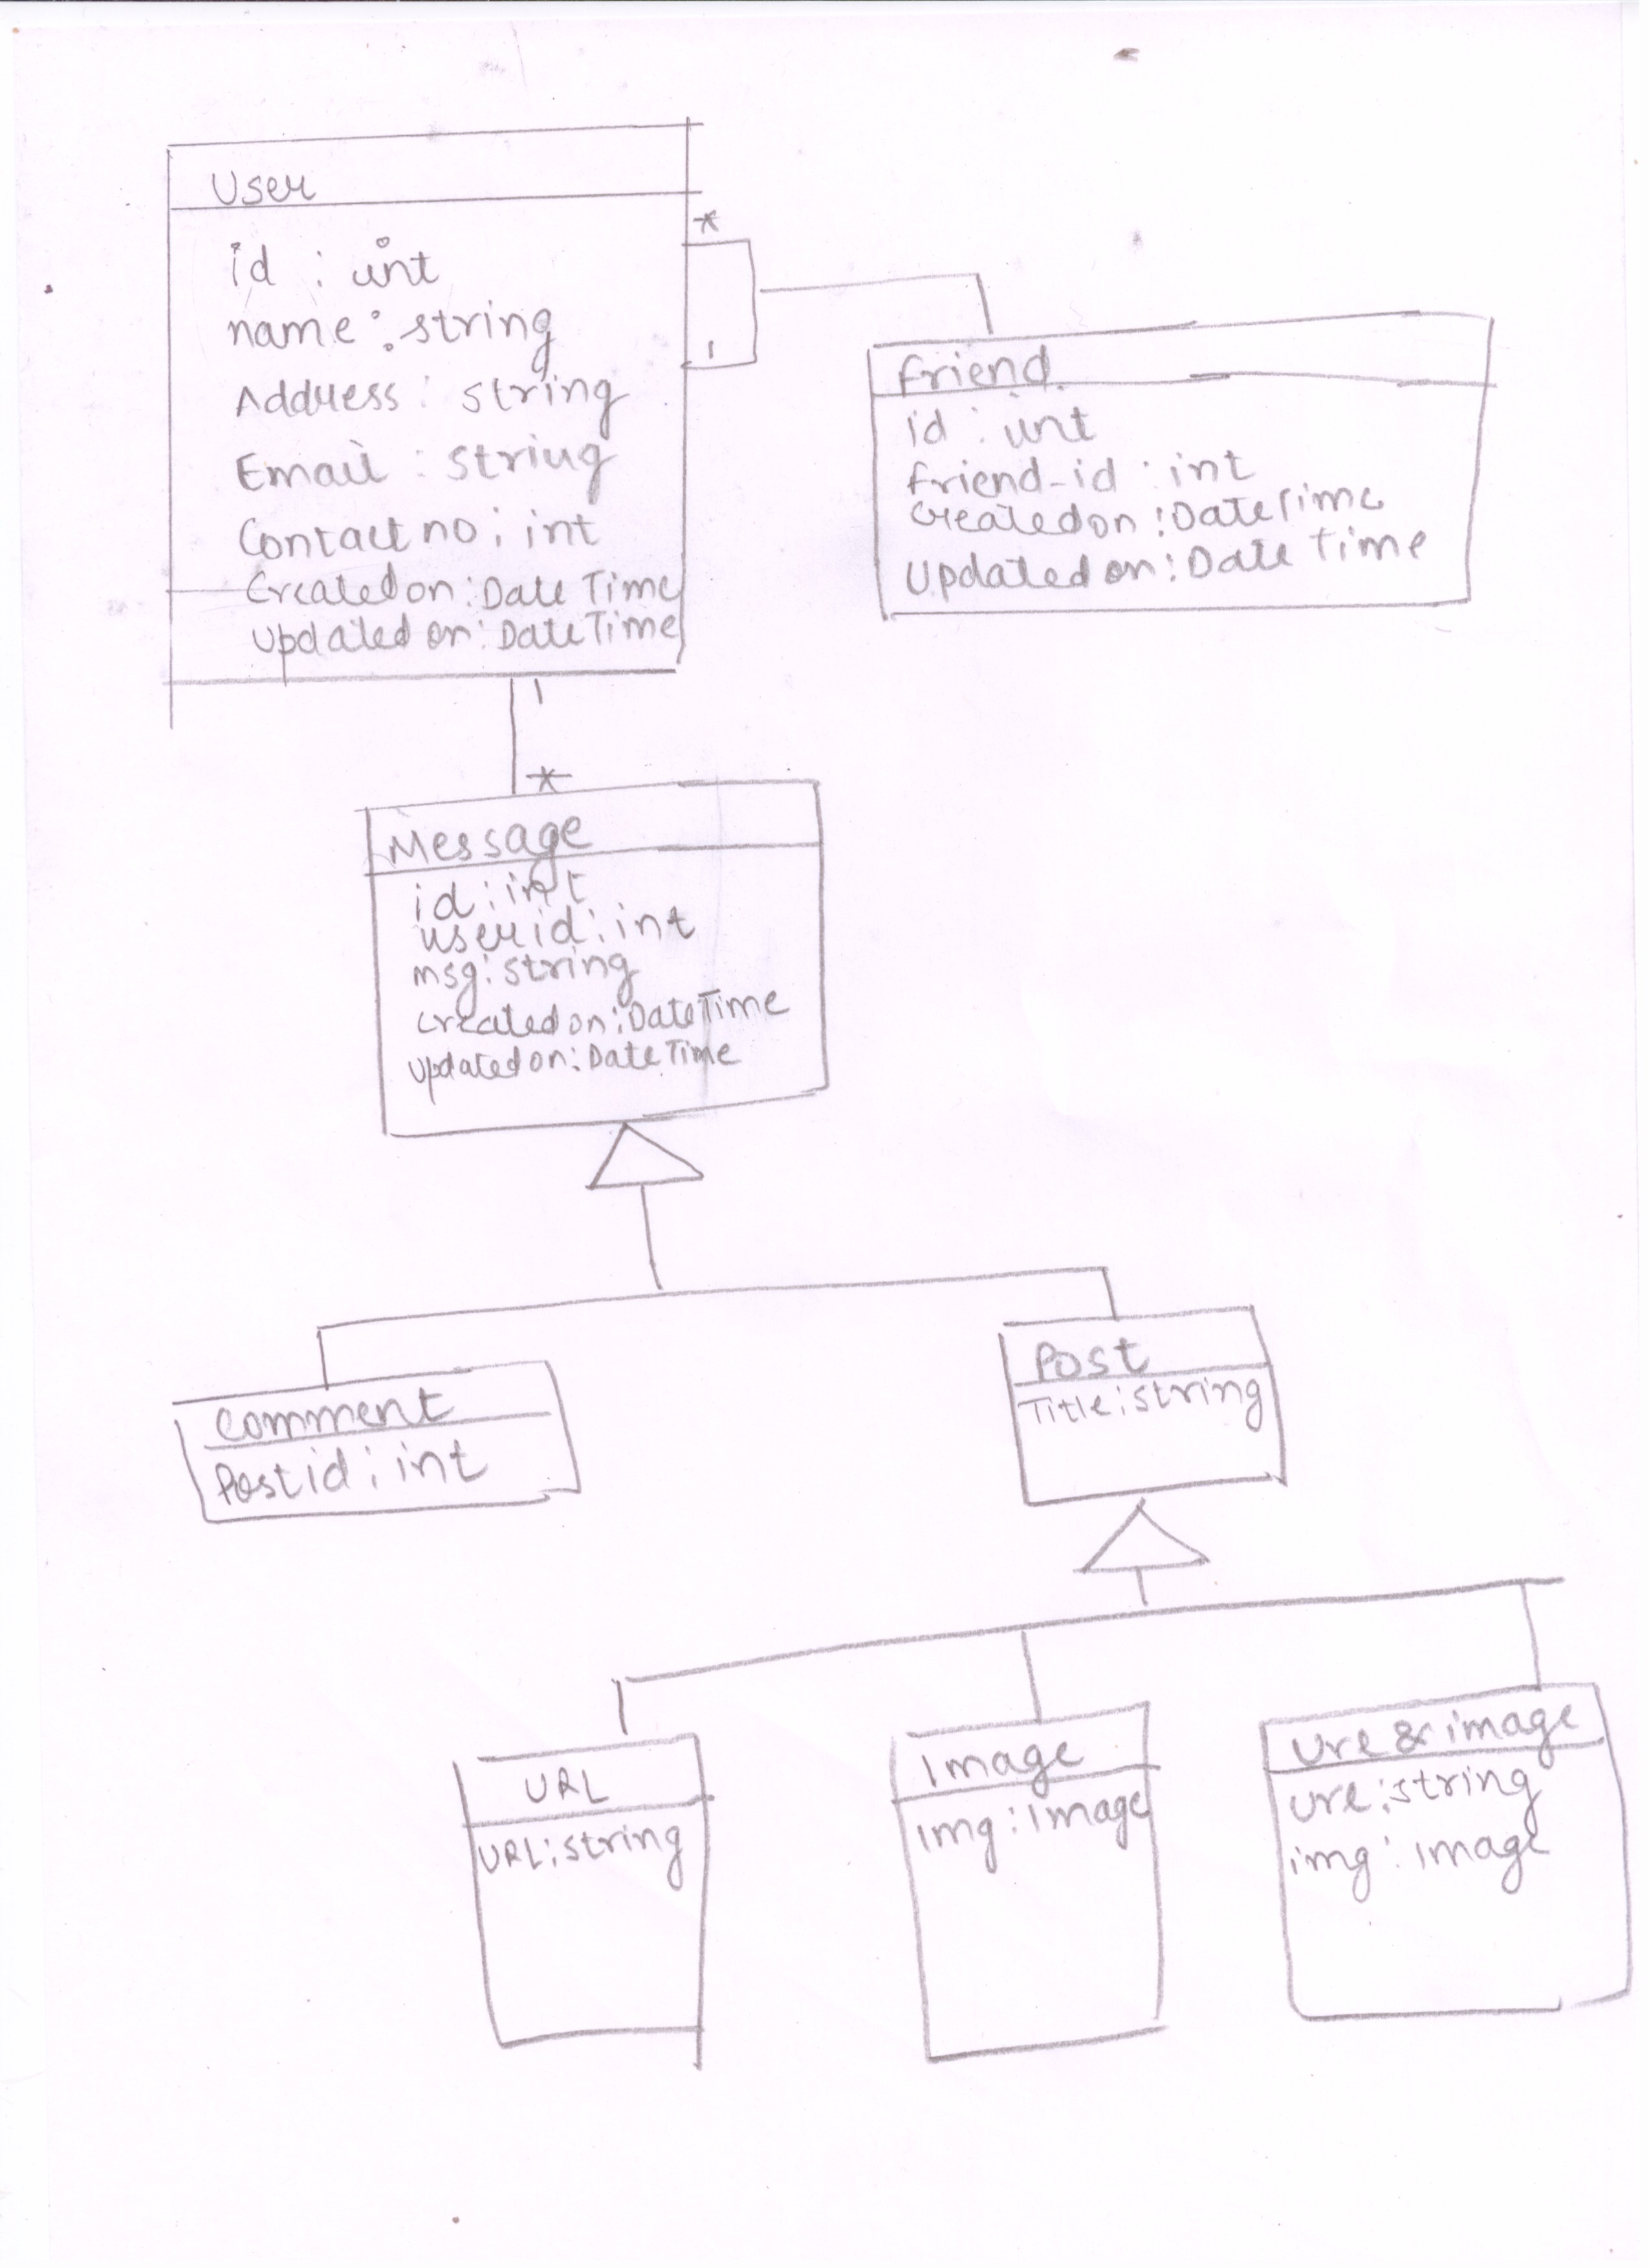 User
id : int
name : string
Address : string
Email : string
Contact no : int
Created on : Date Time
Updated on : Date Time
*
1
friend
id : int
friend-id : int
Created on : Date Time
Updated on : Date Time
1
*
Message
id : int
user id : int
msg : string
created on : Date Time
updated on : Date Time
Comment
Post id : int
Post
Title : string
URL
URL : string
Image
img : Image
Url & image
url : string
img : Image